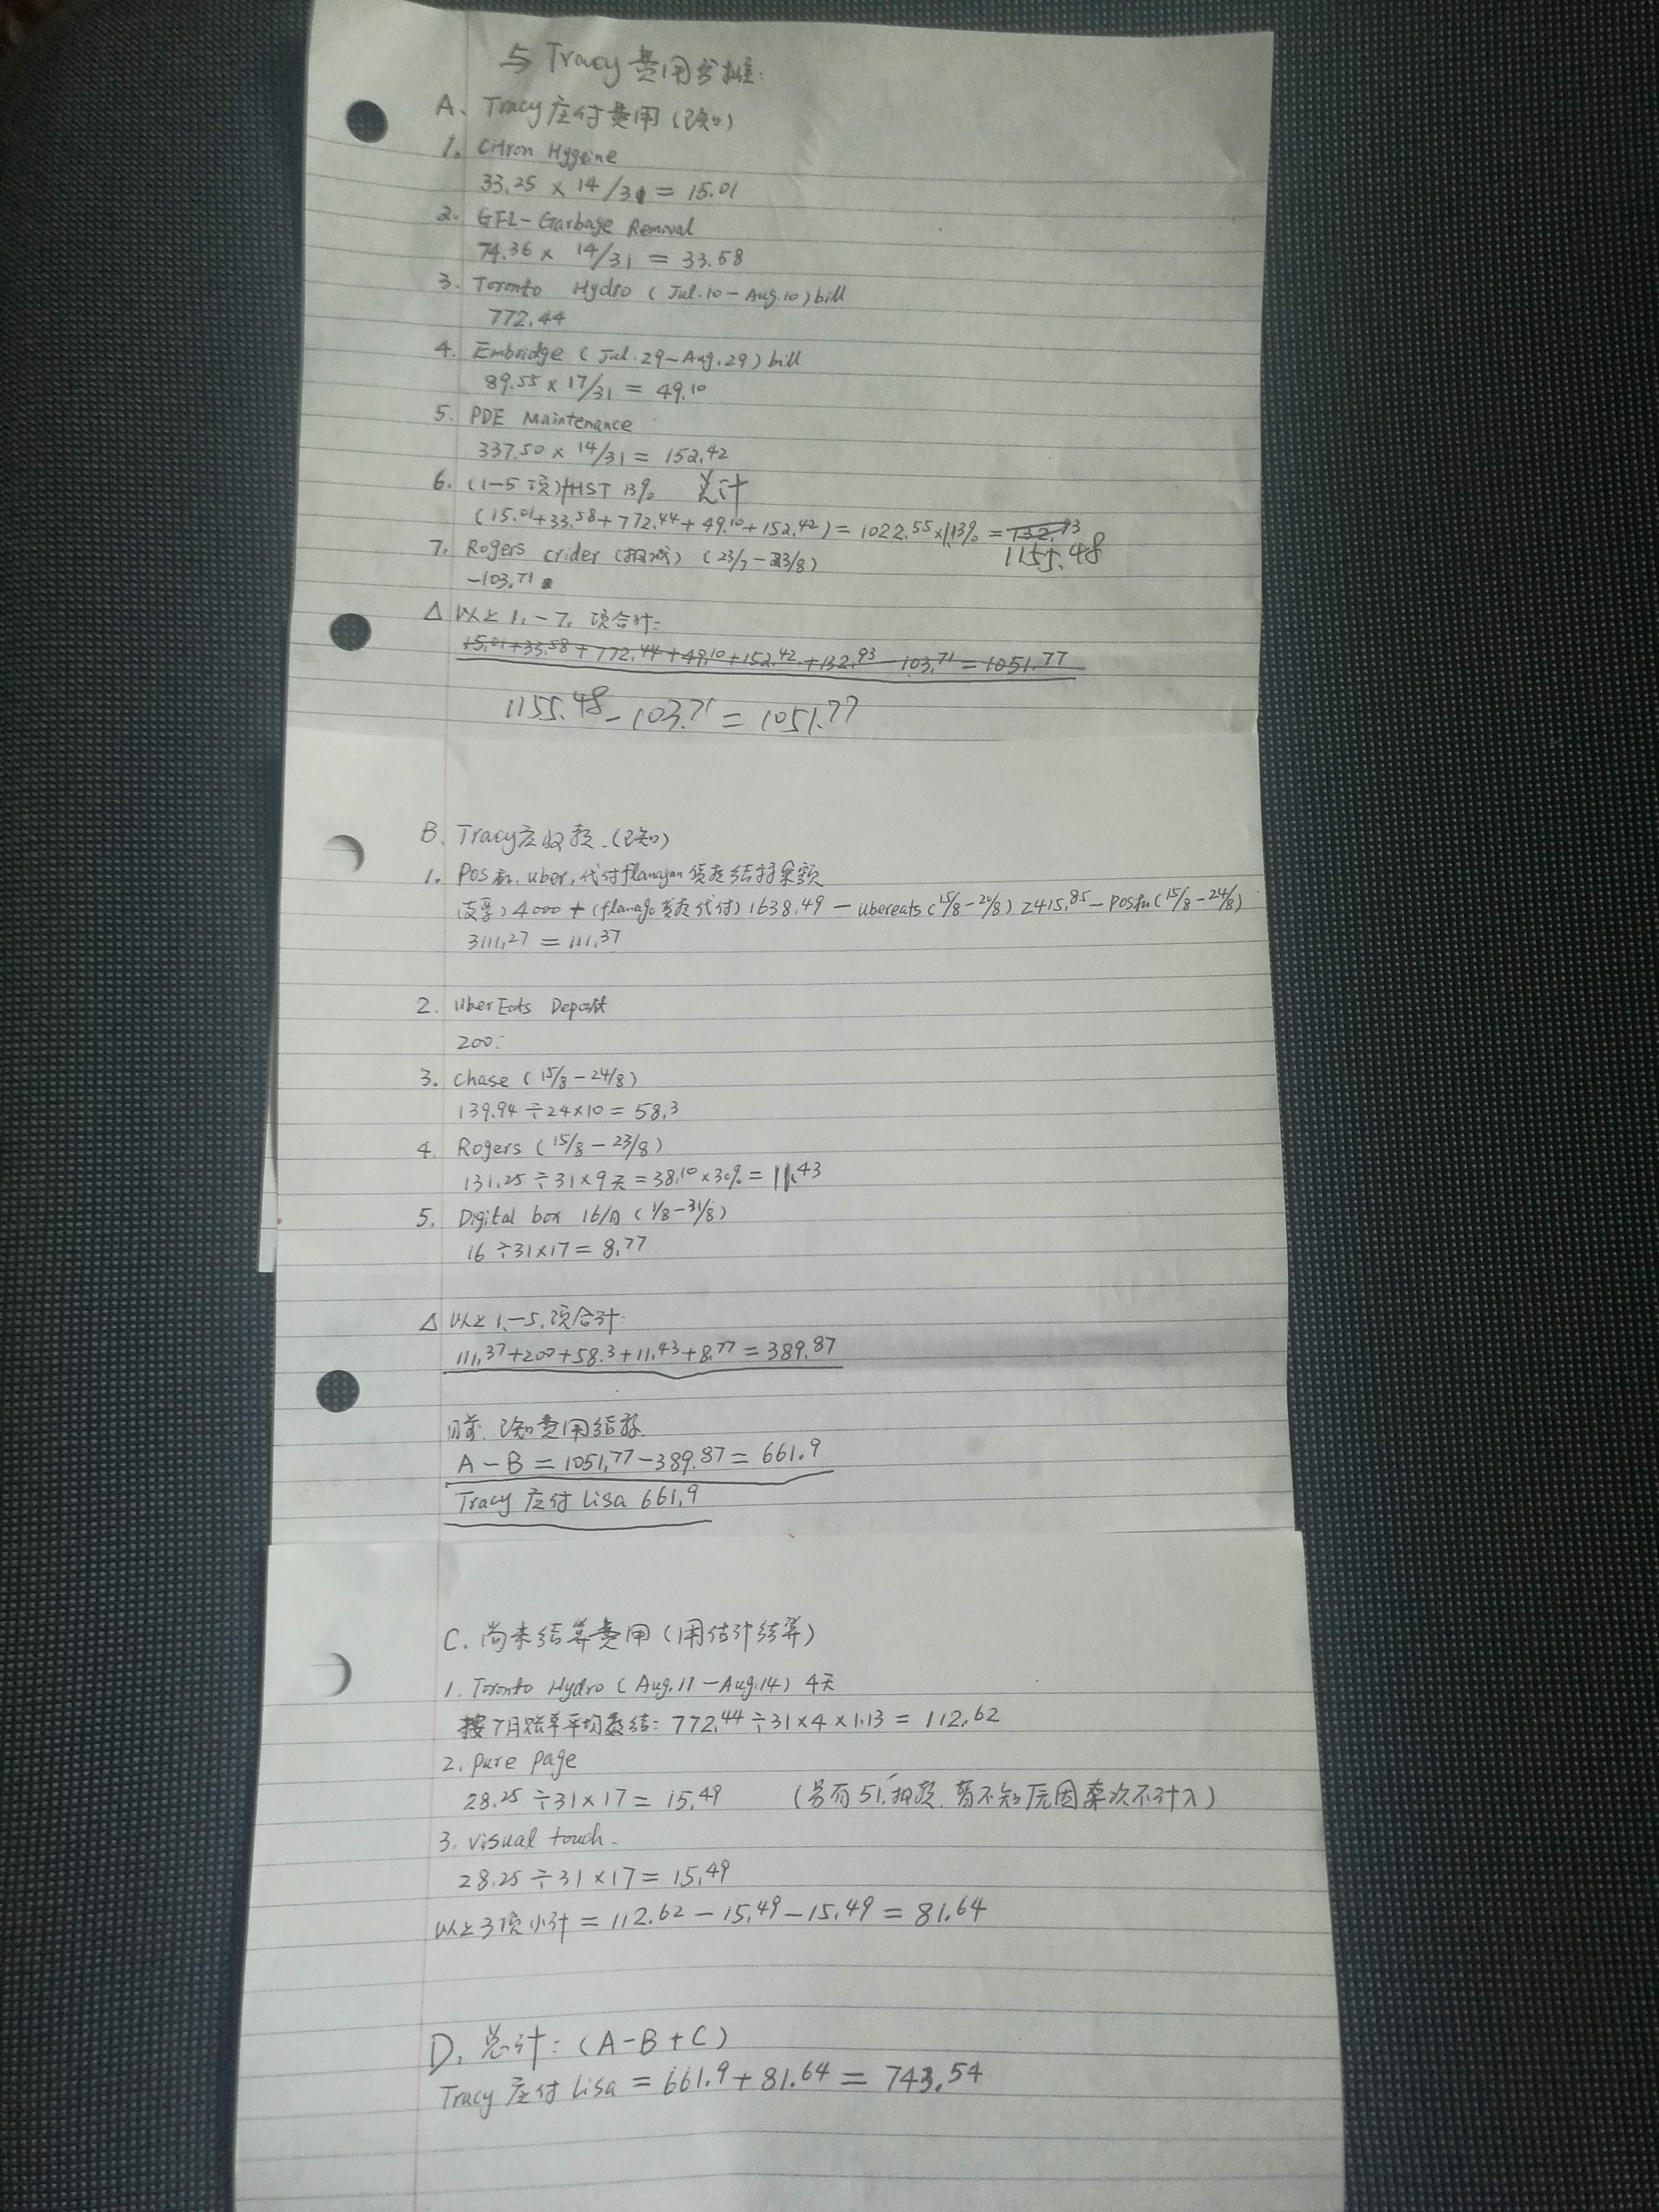 与 Tracy 费用分摊:
A、Tracy 应付费用（已知）
1. Citron Hygeine
33.25 × 14/31 = 15.01
2. GFL-Garbage Removal
74.36 × 14/31 = 33.58
3. Toronto Hydro ( Jul.10-Aug.10) bill
772.44
4. Embridge ( Jul.29-Aug.29) bill
89.55 × 17/31 = 49.10
5. PDE Maintenance
337.50 × 14/31 = 152.42
6. (1-5项)HST 13% 总计
(15.01+33.58+772.44+49.10+152.42) = 1022.55×113% = 132.93
1155.48
7. Rogers crider (扣减) (23/7-23/8)
-103.71
△ 以上 1.-7. 项合计:
15.01+33.58+772.44+49.10+152.42+132.93-103.71=1051.77
1155.48-103.71=1051.77
B. Tracy应收款.(已知)
1. Pos机, uber, 代付flanagan货款结抒余额
(支票) 4000 + (flanago 货款代付) 1638.49 - ubereats (15/8-20/8) 2415.85 - pos机 (15/8-24/8)
3111.27 = 111.37
2. Uber Eats Deposit
200.
3. Chase ( 15/8-24/8)
139.94 ÷24×10 = 58.3
4. Rogers ( 15/8-23/8)
131.25 ÷31×9天=38.10×30%= 11.43
5. Digital box 16/月 ( 1/8-31/8)
16 ÷31×17= 8.77
△ 以上 1.-5. 项合计:
111.37+200+58.3+11.43+8.77=389.87
目前. 已知费用结算
A-B=1051.77-389.87=661.9
Tracy 应付 Lisa 661.9
C. 尚未结算费用（用估计结算）
1. Toronto Hydro ( Aug.11-Aug.14) 4天
按7月账单平均数结: 772.44÷31×4×1.13 = 112.62
2. Pure page
28.25 ÷31×17= 15.49 (另有51.扣款. 暂不知原因本次不计入)
3. Visual touch.
28.25 ÷31×17= 15.49
以上3项小计 = 112.62-15.49-15.49 = 81.64
D. 总计: (A-B+C)
Tracy 应付 Lisa = 661.9+81.64 = 743.54